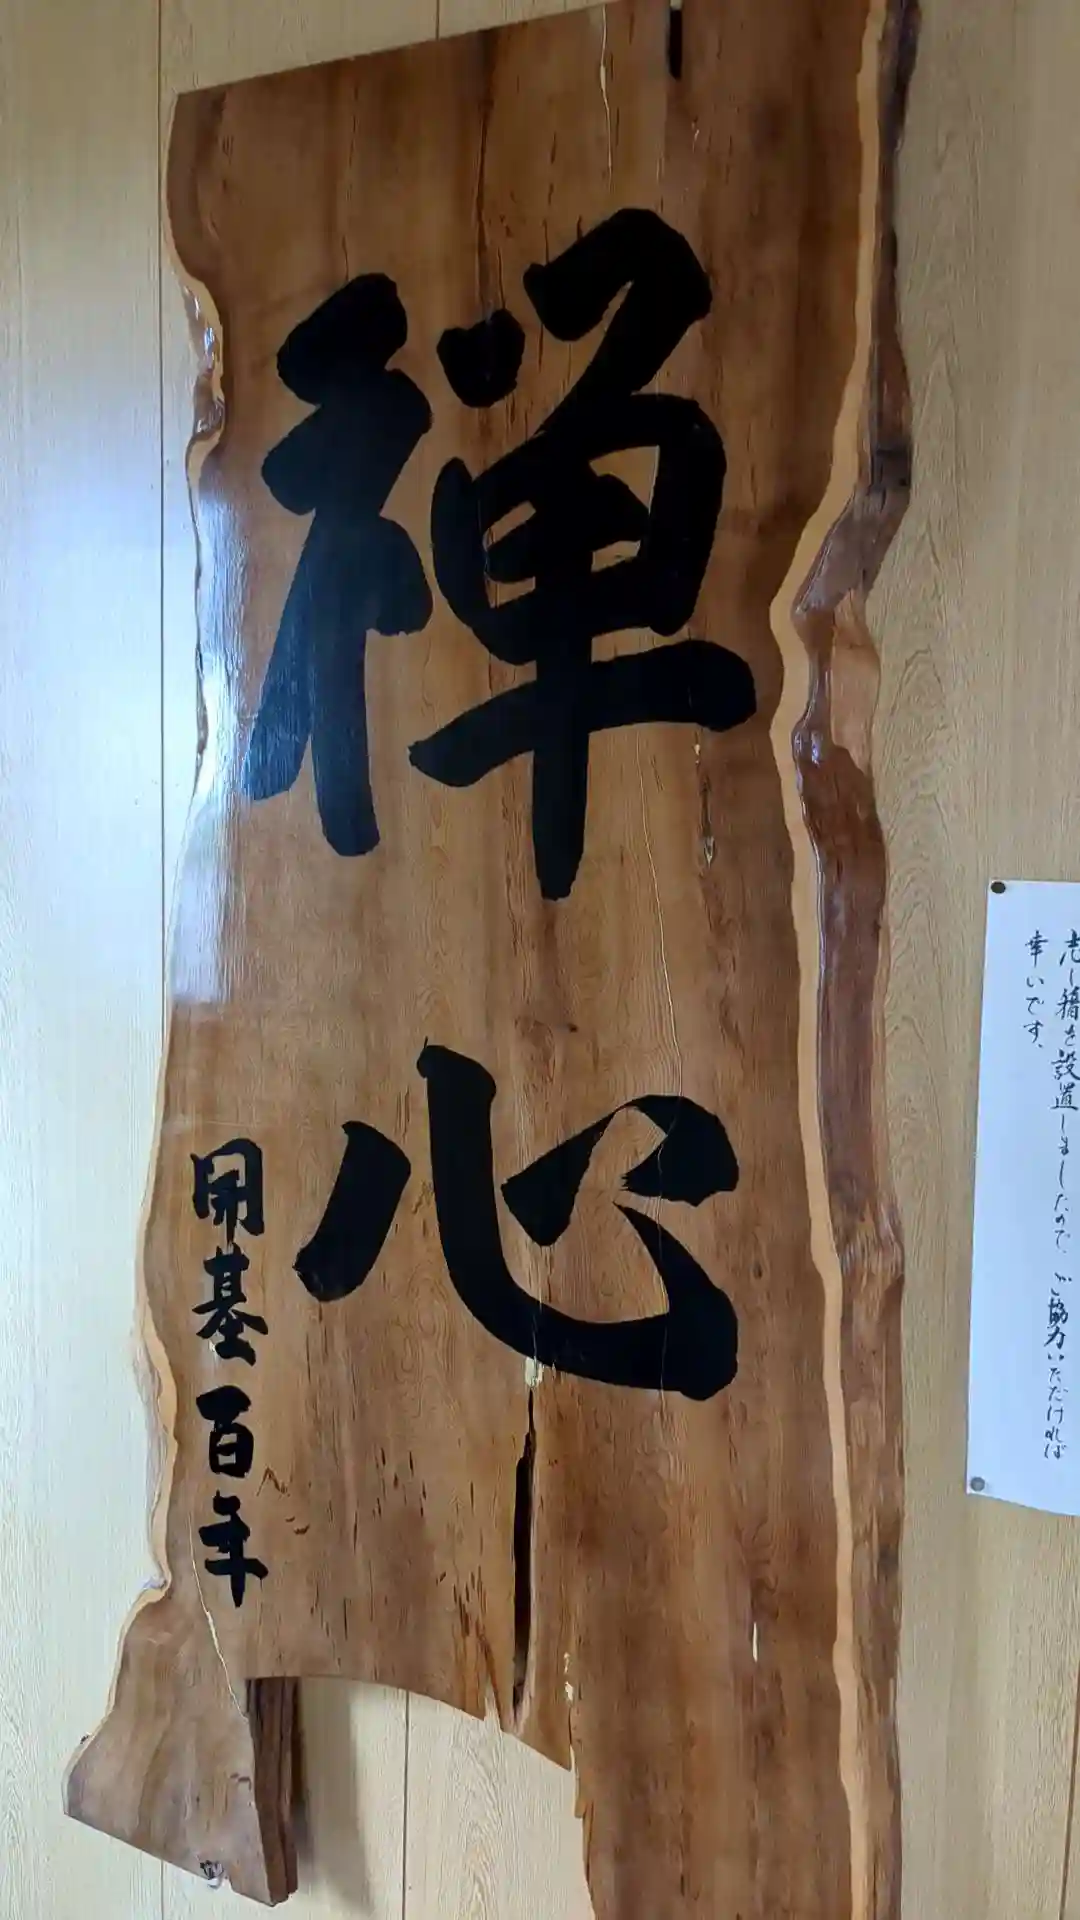 禅心
開基百年
志し箱を設置しましたので、ご協力いただければ
幸いです、